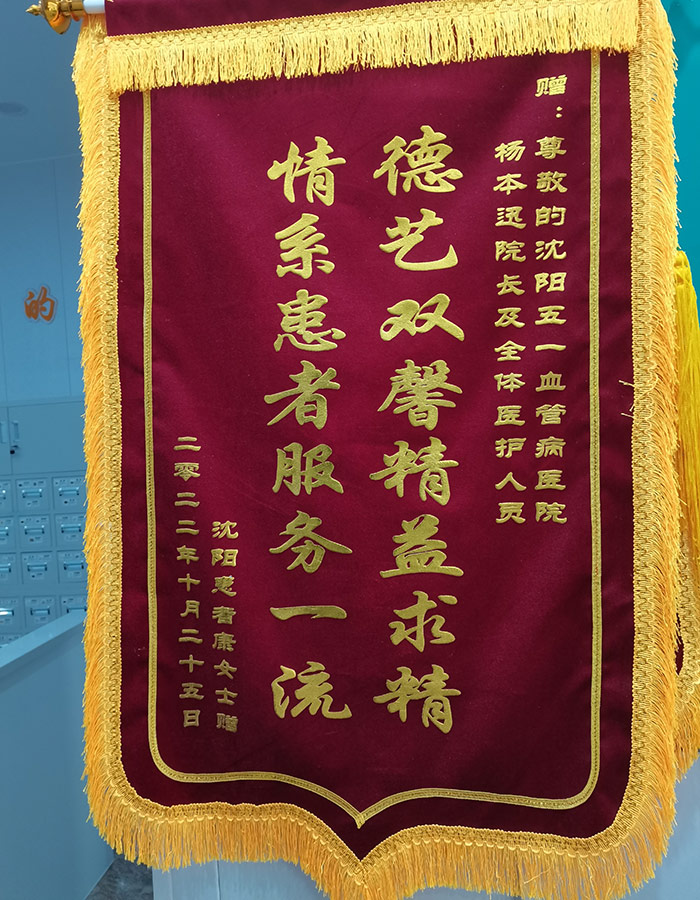 赠：尊敬的沈阳五一血管病医院
杨本迅院长及全体医护人员
德艺双馨精益求精
情系患者服务一流
沈阳患者康女士赠
二零二二年十月二十五日
的